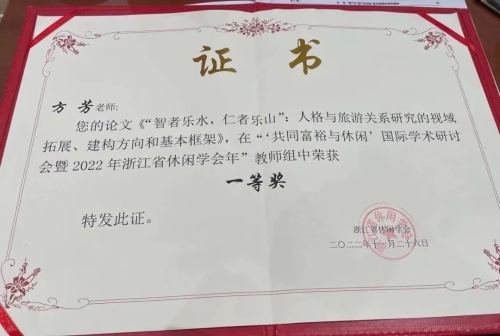 证书
方芳老师:
您的论文《“智者乐水，仁者乐山”：人格与旅游关系研究的视域
拓展、建构方向和基本框架》，在“‘共同富裕与休闲’国际学术研讨
会暨2022年浙江省休闲学会年”教师组中荣获
一等奖
特发此证。
浙江省休闲学会
二〇二二年十一月二十六日